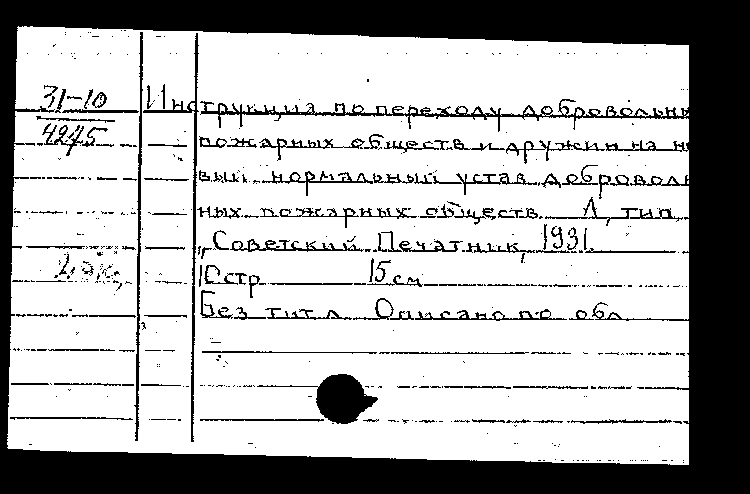 31-10
4275
Инструкция по переходу добровольн
пожарных обществ и дружин на н
вый нормальный устав доброволь
ных пожарных обществ Л, тип
„Советский Печатник, 1931.
10 стр 15 см
2 экз,
Без тит. л. Описано по обл